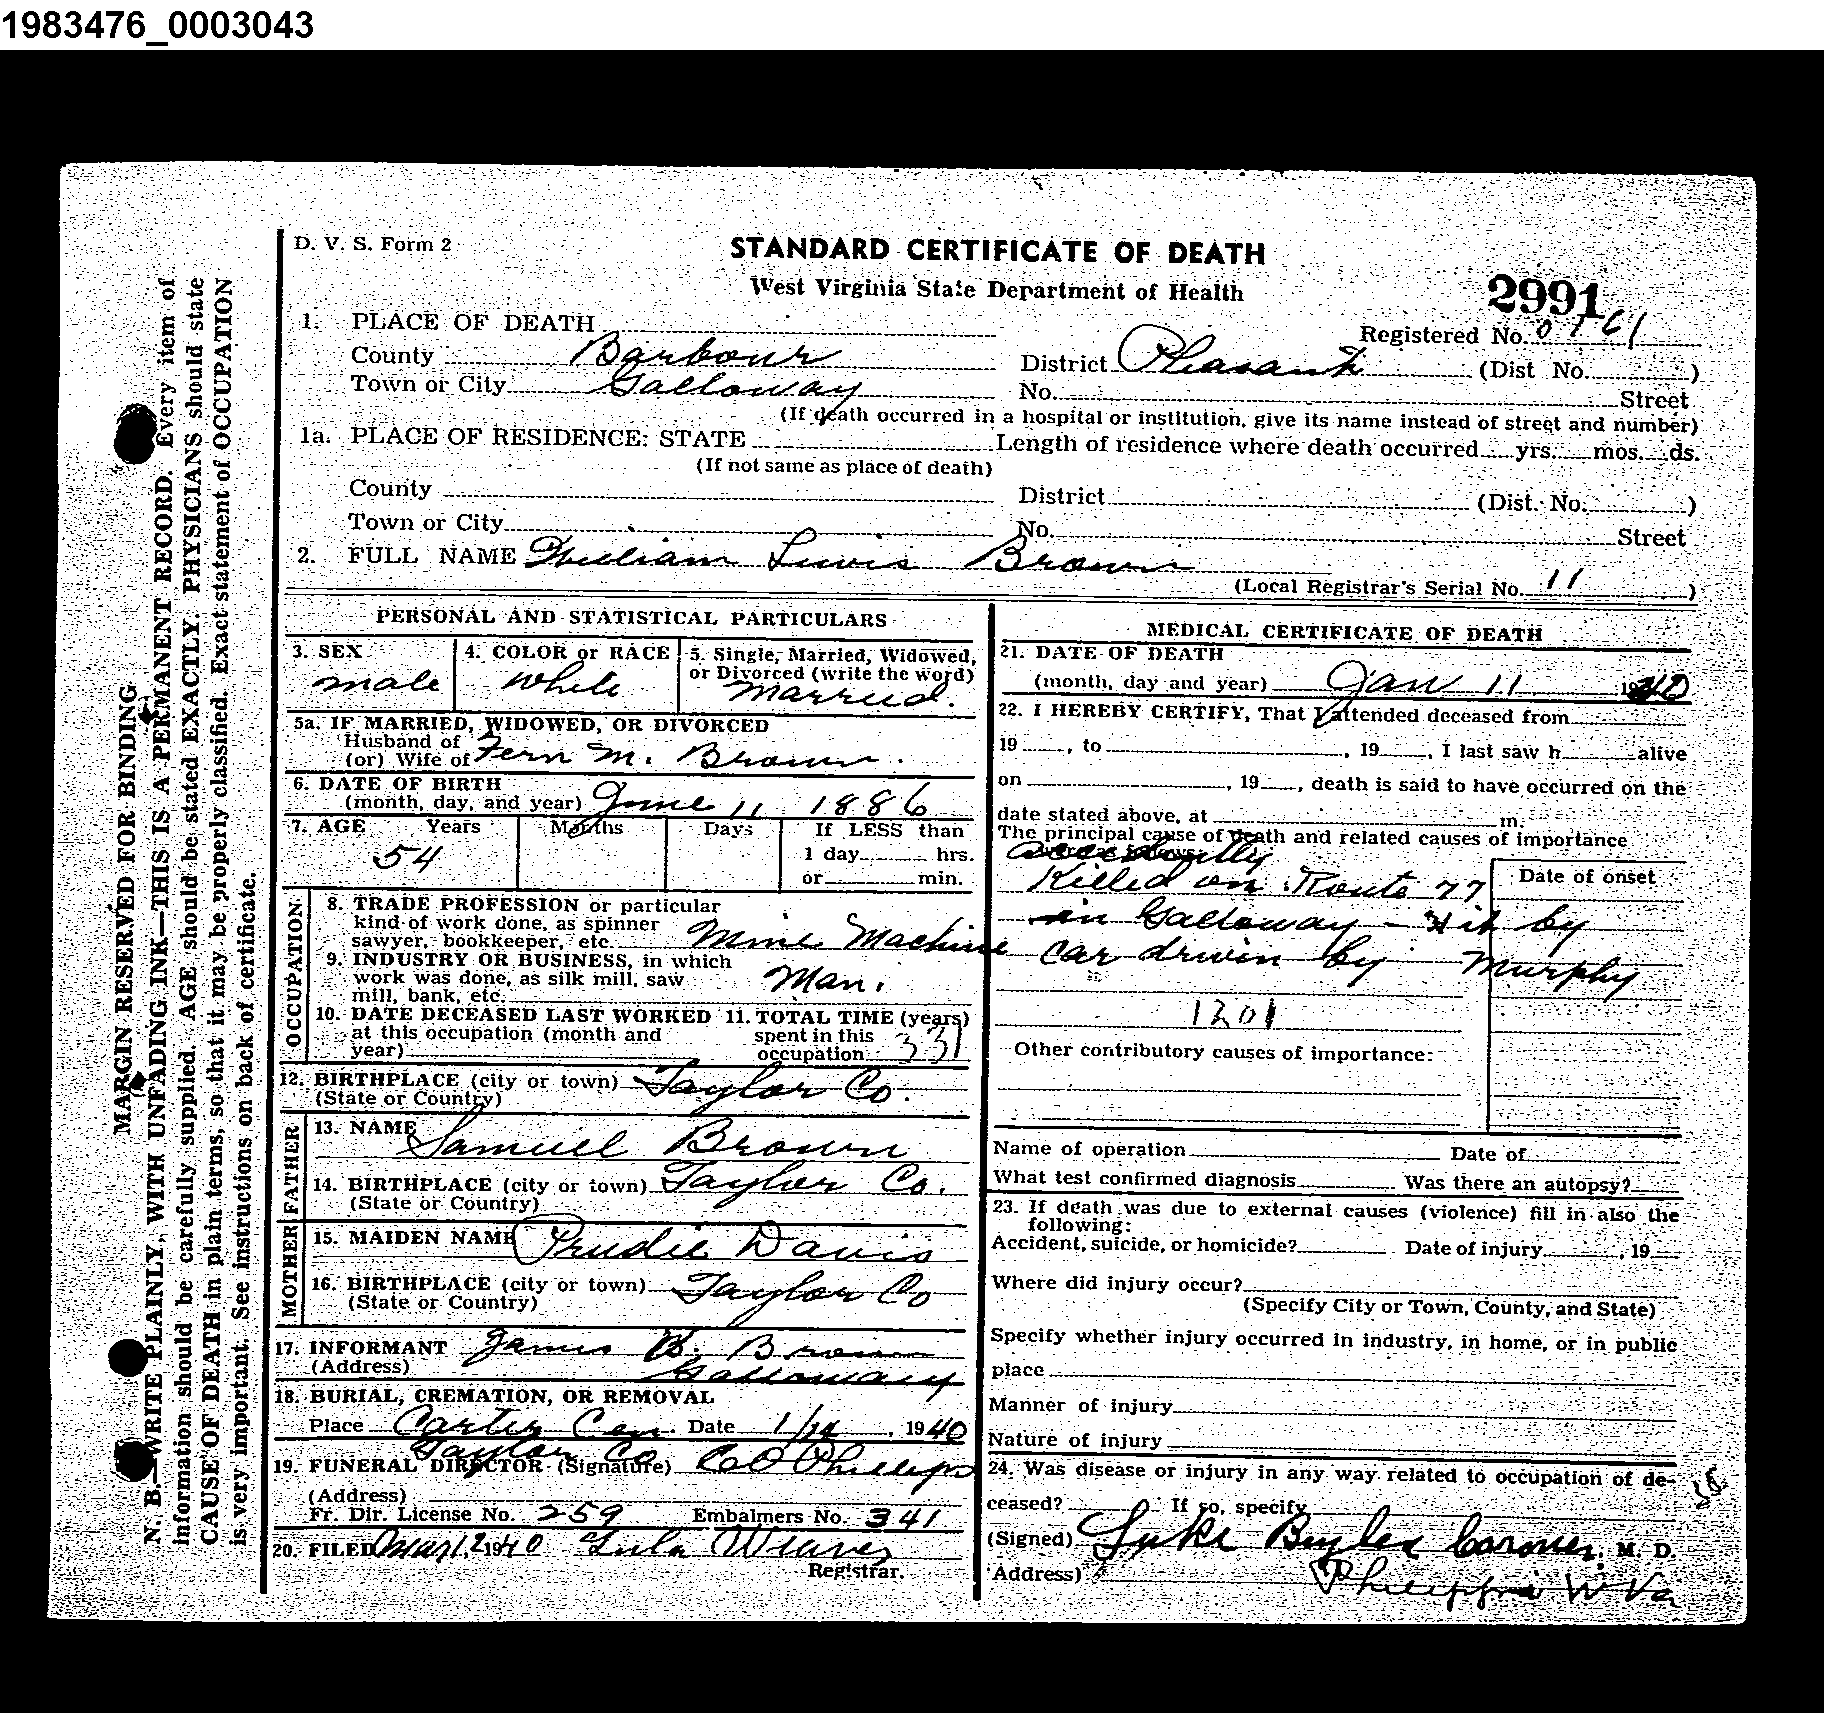 1983476_0003043
D. V. S. Form 2
STANDARD CERTIFICATE OF DEATH
West Virginia State Department of Health
2991
Registered No. 0761
1. PLACE OF DEATH
County Barbour District Pleasant (Dist No. )
Town or City Galloway No. Street
(If death occurred in a hospital or institution, give its name instead of street and number)
1a. PLACE OF RESIDENCE: STATE Length of residence where death occurred yrs. mos. ds.
(If not same as place of death)
County District (Dist. No. )
Town or City No. Street
2. FULL NAME William Lewis Brown
(Local Registrar's Serial No. 11 )
PERSONAL AND STATISTICAL PARTICULARS
3. SEX
male
4. COLOR or RACE
White
5. Single, Married, Widowed,
or Divorced (write the word)
Married.
5a. IF MARRIED, WIDOWED, OR DIVORCED
Husband of
(or) Wife of Fern M. Brown.
6. DATE OF BIRTH
(month, day, and year) June 11 1886
7. AGE Years Months Days If LESS than
54 1 day hrs.
or min.
OCCUPATION
8. TRADE PROFESSION or particular
kind of work done, as spinner
sawyer, bookkeeper, etc. Mine Machine
9. INDUSTRY OR BUSINESS, in which
work was done, as silk mill, saw
mill, bank, etc. Man.
10. DATE DECEASED LAST WORKED 11. TOTAL TIME (years)
at this occupation (month and spent in this
year) occupation 331
12. BIRTHPLACE (city or town) Taylor Co.
(State or Country)
FATHER
13. NAME Samuel Brown
14. BIRTHPLACE (city or town) Taylor Co.
(State or Country)
MOTHER
15. MAIDEN NAME Prudie Davis
16. BIRTHPLACE (city or town) Taylor Co
(State or Country)
17. INFORMANT James Brown
(Address) Galloway
18. BURIAL, CREMATION, OR REMOVAL
Place Carter Cem. Date 1/14, 1940
Taylor Co
19. FUNERAL DIRECTOR (Signature) Phillips
(Address)
Fr. Dir. License No. 259 Embalmers No. 341
20. FILED Mar 12 1940 Lula Weaver
Registrar.
MEDICAL CERTIFICATE OF DEATH
21. DATE OF DEATH
(month, day and year) Jan 11 1940
22. I HEREBY CERTIFY, That I attended deceased from
19 , to , 19 , I last saw h alive
on , 19 , death is said to have occurred on the
date stated above, at m.
The principal cause of death and related causes of importance
were as follows:
Accidently
Date of onset
Killed on Route 77
in Galloway - Hit by
car driven by Murphy
1201
Other contributory causes of importance:
Name of operation Date of
What test confirmed diagnosis Was there an autopsy?
23. If death was due to external causes (violence) fill in also the
following:
Accident, suicide, or homicide? Date of injury , 19
Where did injury occur?
(Specify City or Town, County, and State)
Specify whether injury occurred in industry, in home, or in public
place
Manner of injury
Nature of injury
24. Was disease or injury in any way related to occupation of de-
ceased? If so, specify
(Signed) Coroner, M. D.
(Address) Philippi W Va
MARGIN RESERVED FOR BINDING
N. B.—WRITE PLAINLY, WITH UNFADING INK—THIS IS A PERMANENT RECORD. Every item of
information should be carefully supplied. AGE should be stated EXACTLY. PHYSICIANS should state
CAUSE OF DEATH in plain terms, so that it may be properly classified. Exact statement of OCCUPATION
is very important. See instructions on back of certificate.